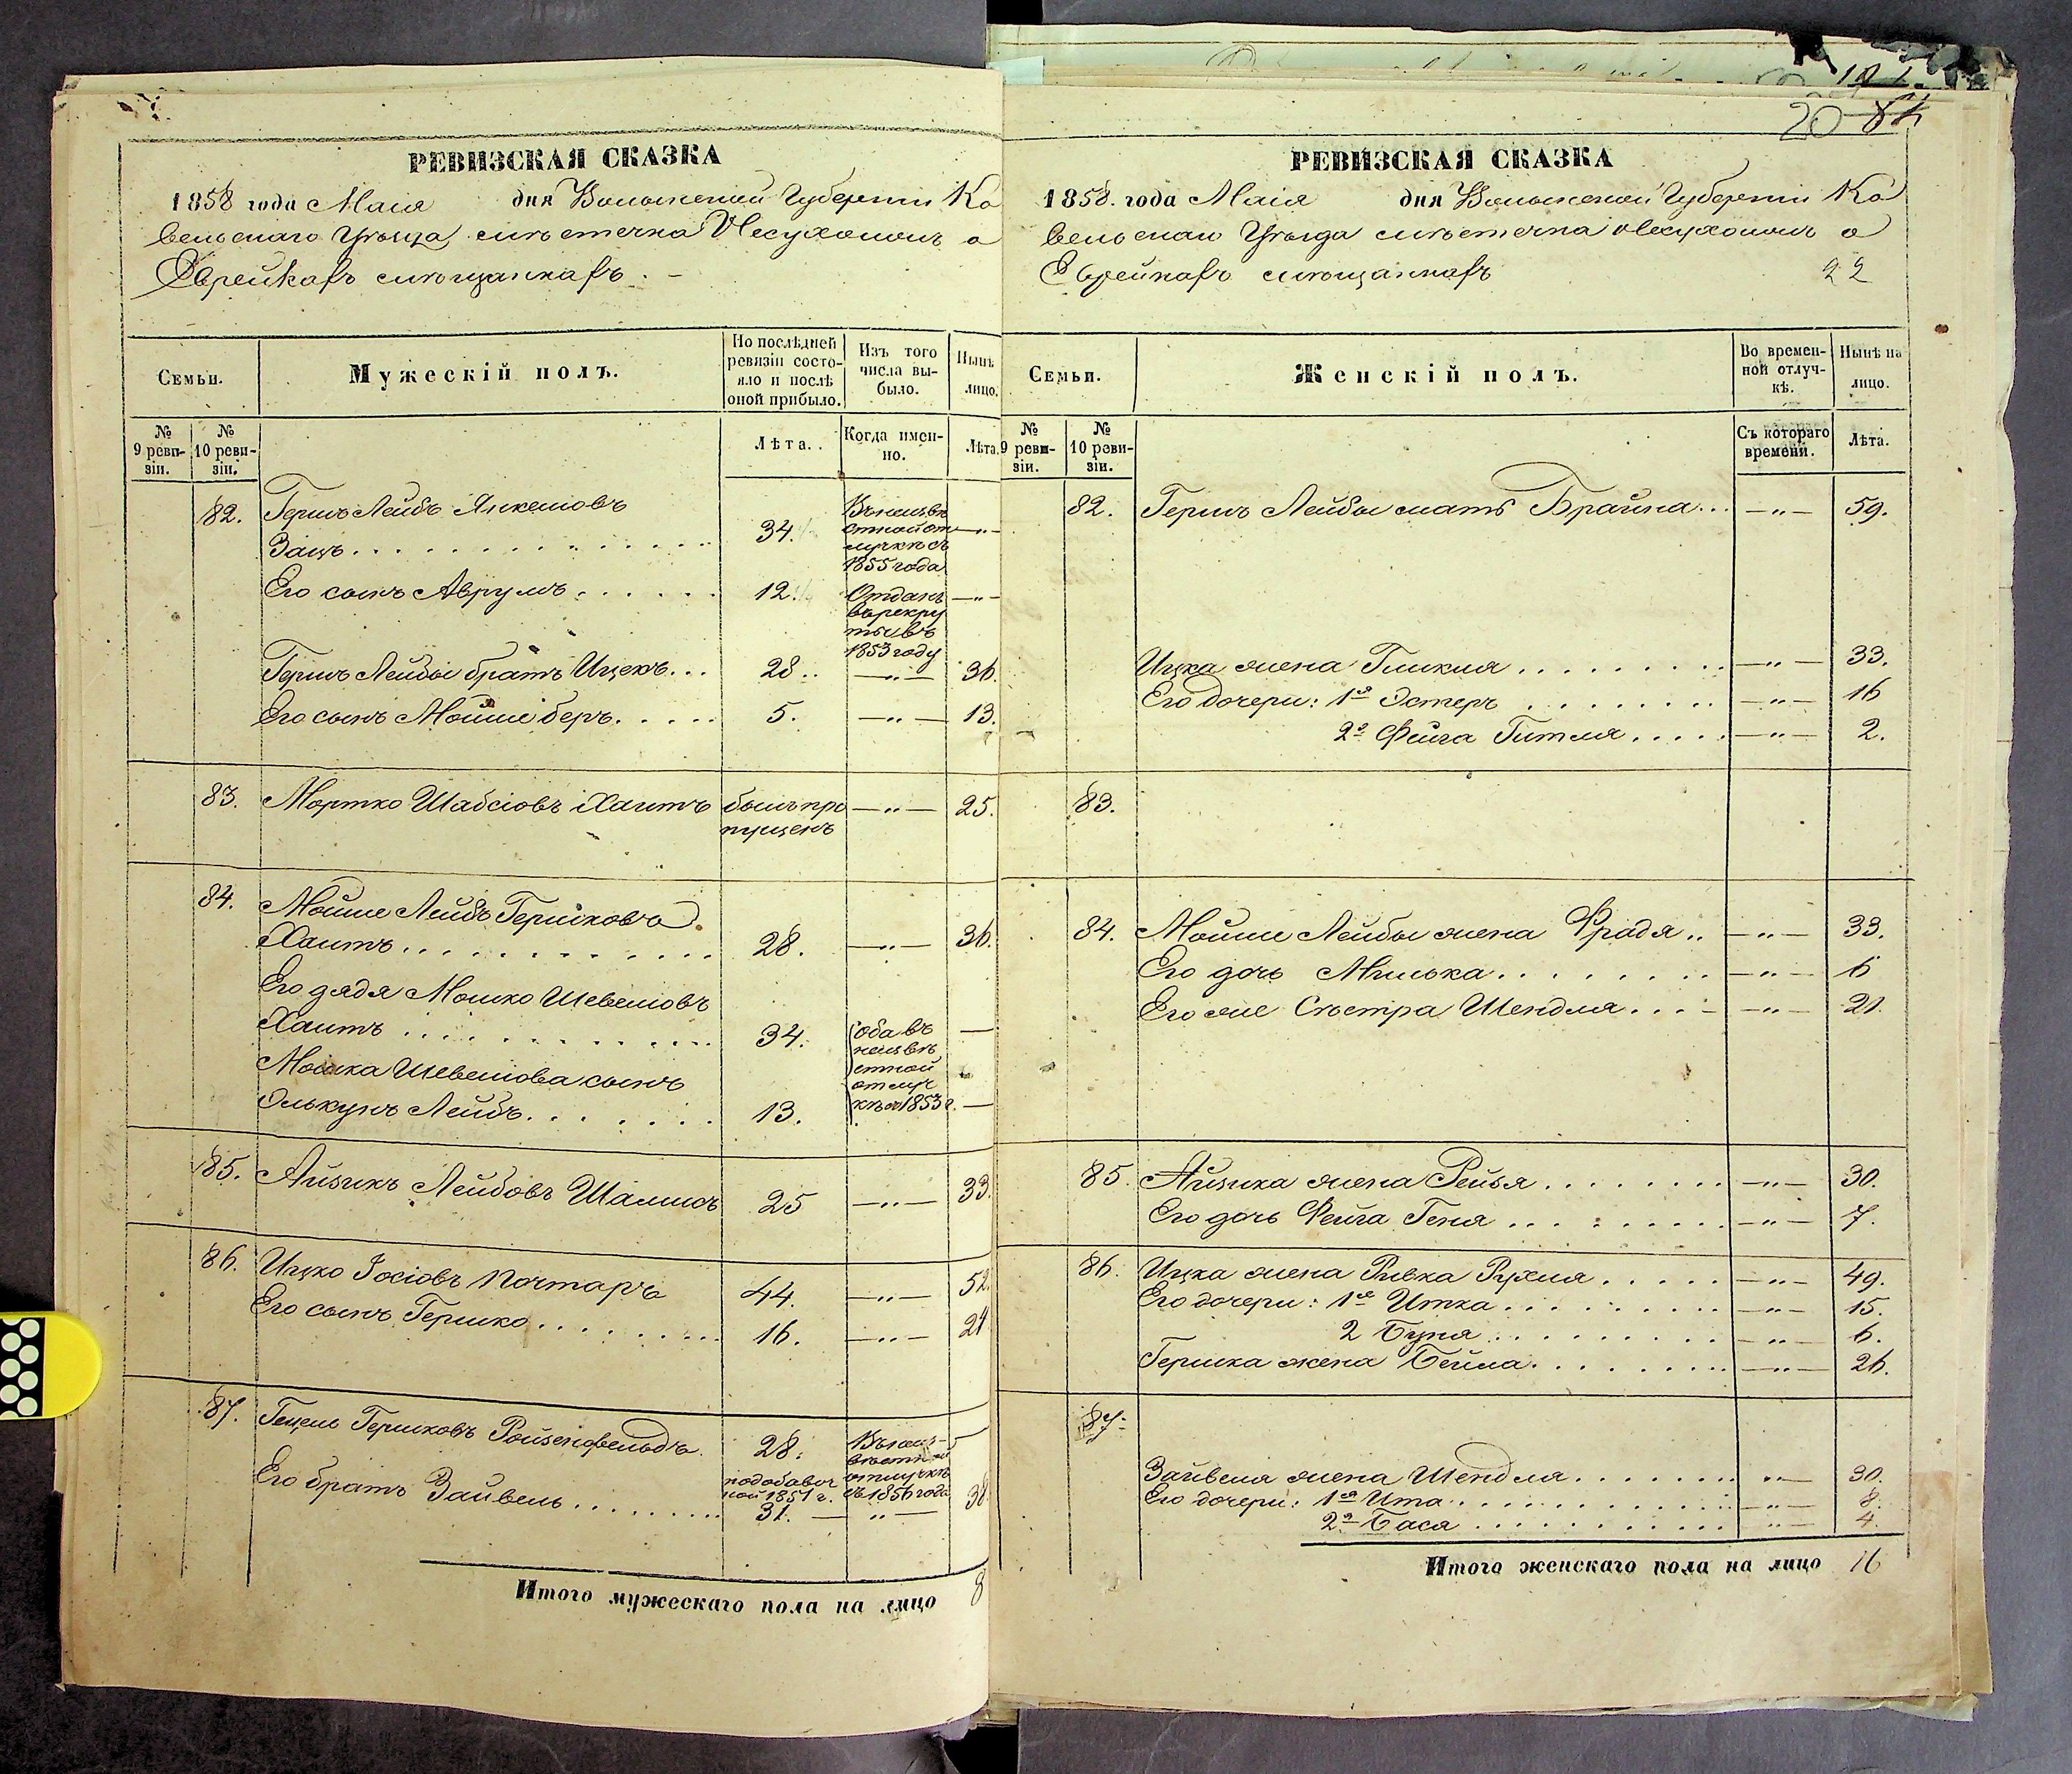 РЕВИЗСКАЯ СКАЗКА
1858 года Маія дня Волынской Губерніи Ко
вельскаго Уѣзда мѣстечка Несухоижъ о
Еврейкахъ мѣщанкахъ. –
Семьи.
Мужескій полъ.
По послѣдней ревизіи состояло и послѣ оной прибыло.
Изъ того числа выбыло.
Нынѣ лицо.
№ 9 ревизіи.
№ 10 ревизіи.
Лѣта.
Когда именно.
Лѣта.
82. Гершъ Лейбъ Янкелiовъ
Зацъ . . . 34. Въ неизвѣстной отлучкѣ съ 1855 года —"—
Его сынъ Аврумъ . . . 12. Отданъ въ рекруты въ 1853 году —"—
Гершъ Лейбы братъ Ицекъ . . . 28. —"— 36.
Его сынъ Мойше беръ . . . 5. —"— 13.
83. Мортко Шабсіовъ Хаитъ былъ пропущенъ —"— 25.
84. Мойше Лейбъ Гершковъ
Хаитъ . . . 28. —"— 36.
Его дядя Мошко Шевелiовъ
Хаитъ . . . 34. оба въ неизвѣстной отлучкѣ съ 1853 г. —
Мошка Шевелiова сынъ
Элькунъ Лейбъ . . . 13. —
85. Айзикъ Лейбовъ Шалиш 25 —"— 33.
86. Ицко Іосіовъ Почтаръ 44. —"— 52.
Его сынъ Гершко . . . 16. —"— 24
87. Гецель Гершковъ Ройзенфельдъ 28. Въ неизвѣстной отлучкѣ съ 1856 года —
Его братъ Зайвель . . . по добавочной 1851 г. 31. —"— 38.
Итого мужескаго пола на лицо 8
20 84
РЕВИЗСКАЯ СКАЗКА
1858. года Маія дня Волынской Губерніи Ко
вельскаго Уѣзда мѣстечка Несухоижъ о
Еврейкахъ мѣщанкахъ 22
Семьи.
Женскій полъ.
Во временной отлучкѣ.
Нынѣ на лицо.
№ 9 ревизіи.
№ 10 ревизіи.
Съ котораго времени.
Лѣта.
82. Гершъ Лейбы мать Брайна . . . —"— 59.
Ицка жена Гликля . . . —"— 33.
Его дочери: 1я Эстеръ . . . —"— 16
2я Фейга Гитля . . . —"— 2.
83.
84. Мойше Лейбы жена Фрадя . . —"— 33.
Его дочь Милька . . . —"— 6
Его же Съестра Шендля . . . —"— 21.
85. Айзика жена Рейзя . . . —"— 30.
Его дочь Фейга Геня . . . —"— 7.
86. Ицка жена Ривка Рухля . . . —"— 49.
Его дочери: 1я Итка . . . —"— 15.
2 Буня . . . —"— 6.
Гершка жена Бейла . . . —"— 26.
87.
Зайвеля жена Шендля . . . —"— 30.
Его дочери: 1я Ита . . . —"— 8.
2я Бася . . . —"— 4.
Итого женскаго пола на лицо 16